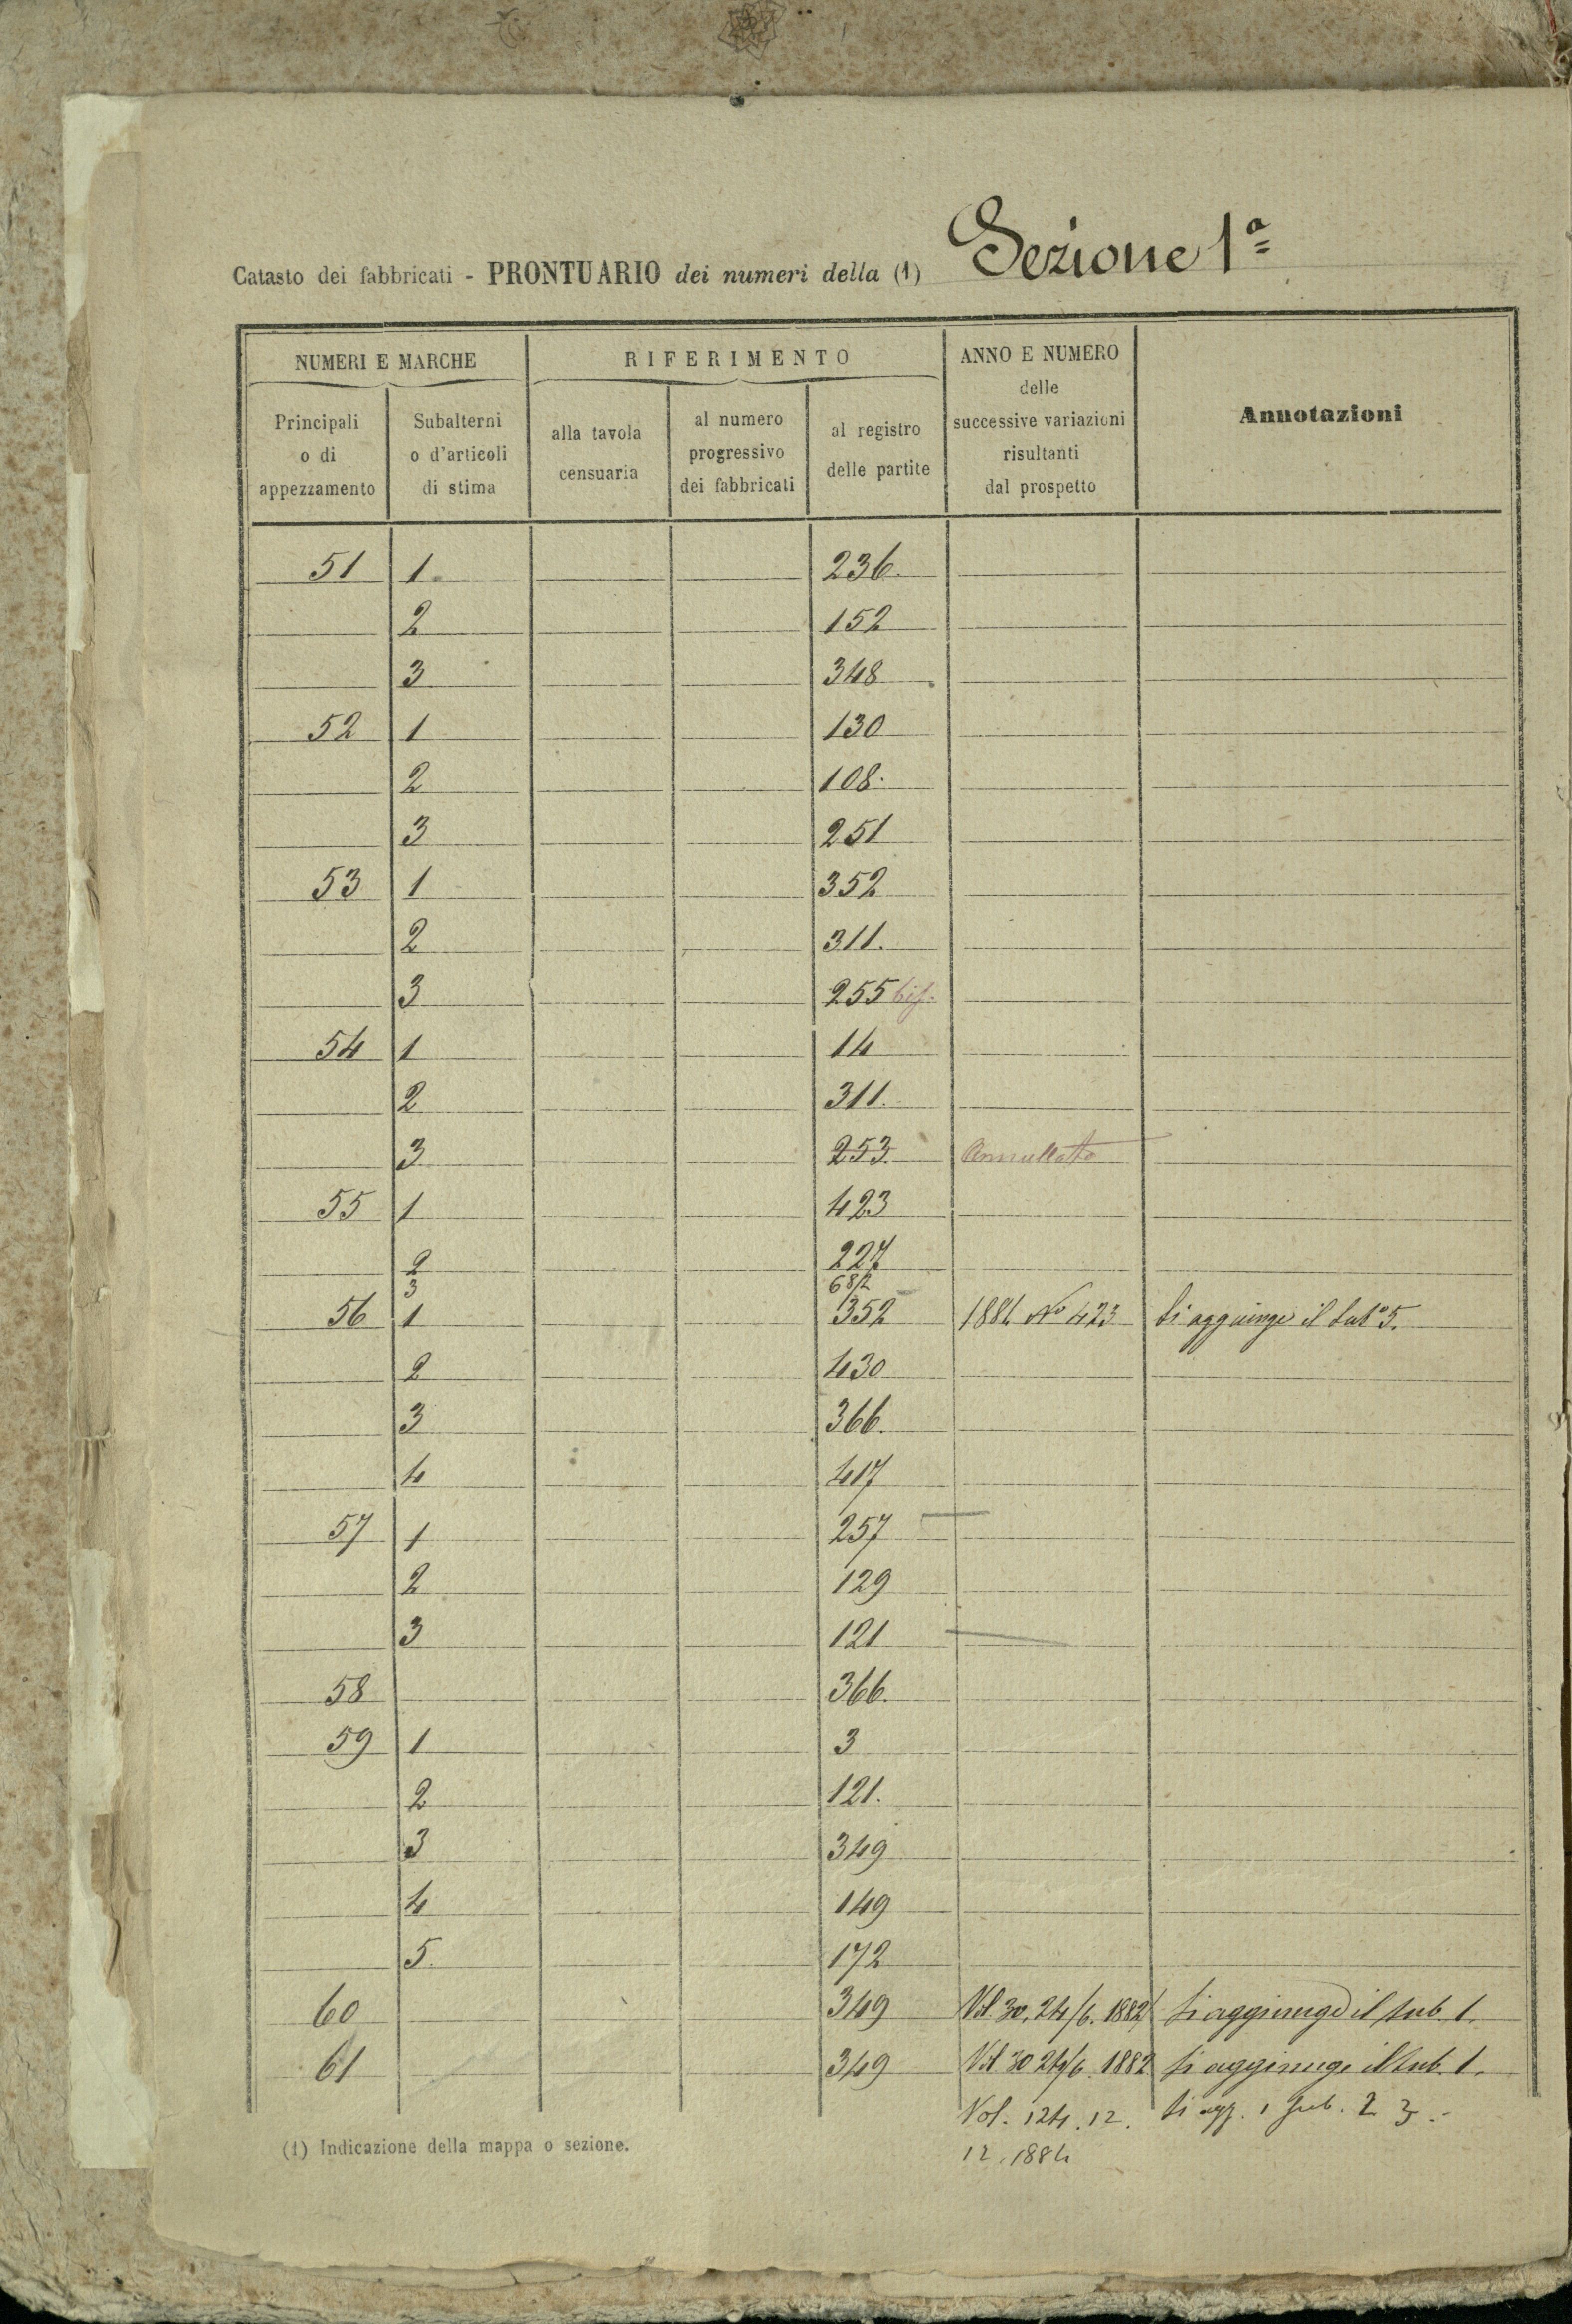 Catasto dei fabbricati - PRONTUARIO dei numeri della (1) Sezione 1ª
NUMERI E MARCHE
RIFERIMENTO
ANNO E NUMERO
delle
successive variazioni
risultanti
dal prospetto
Annotazioni
Principali
o di
appezzamento
Subalterni
o d'articoli
di stima
alla tavola
censuaria
al numero
progressivo
dei fabbricati
al registro
delle partite
51 1 236.
2 152
3 348
52 1 130
2 108.
3 251
53 1 352
2 311.
3 255 bis.
54 1 14
2 311.
3 253. Annullato
55 1 423
2 227
3 68/2
56 1 352 1881 No 423 Si aggiunge il sub° 5.
2 430
3 366.
4 417
57 1 257
2 129
3 121
58 366.
59 1 3
2 121.
3 349
4 149
5. 172
60 349 Vol 30. 24/6. 1882 Si aggiunge il sub. 1.
61 349 Vol 30 24/6. 1882 Si aggiunge il sub. 1.
Vol. 124. 12. Si agg. i sub. 2 3.-
12. 1884
(1) Indicazione della mappa o sezione.